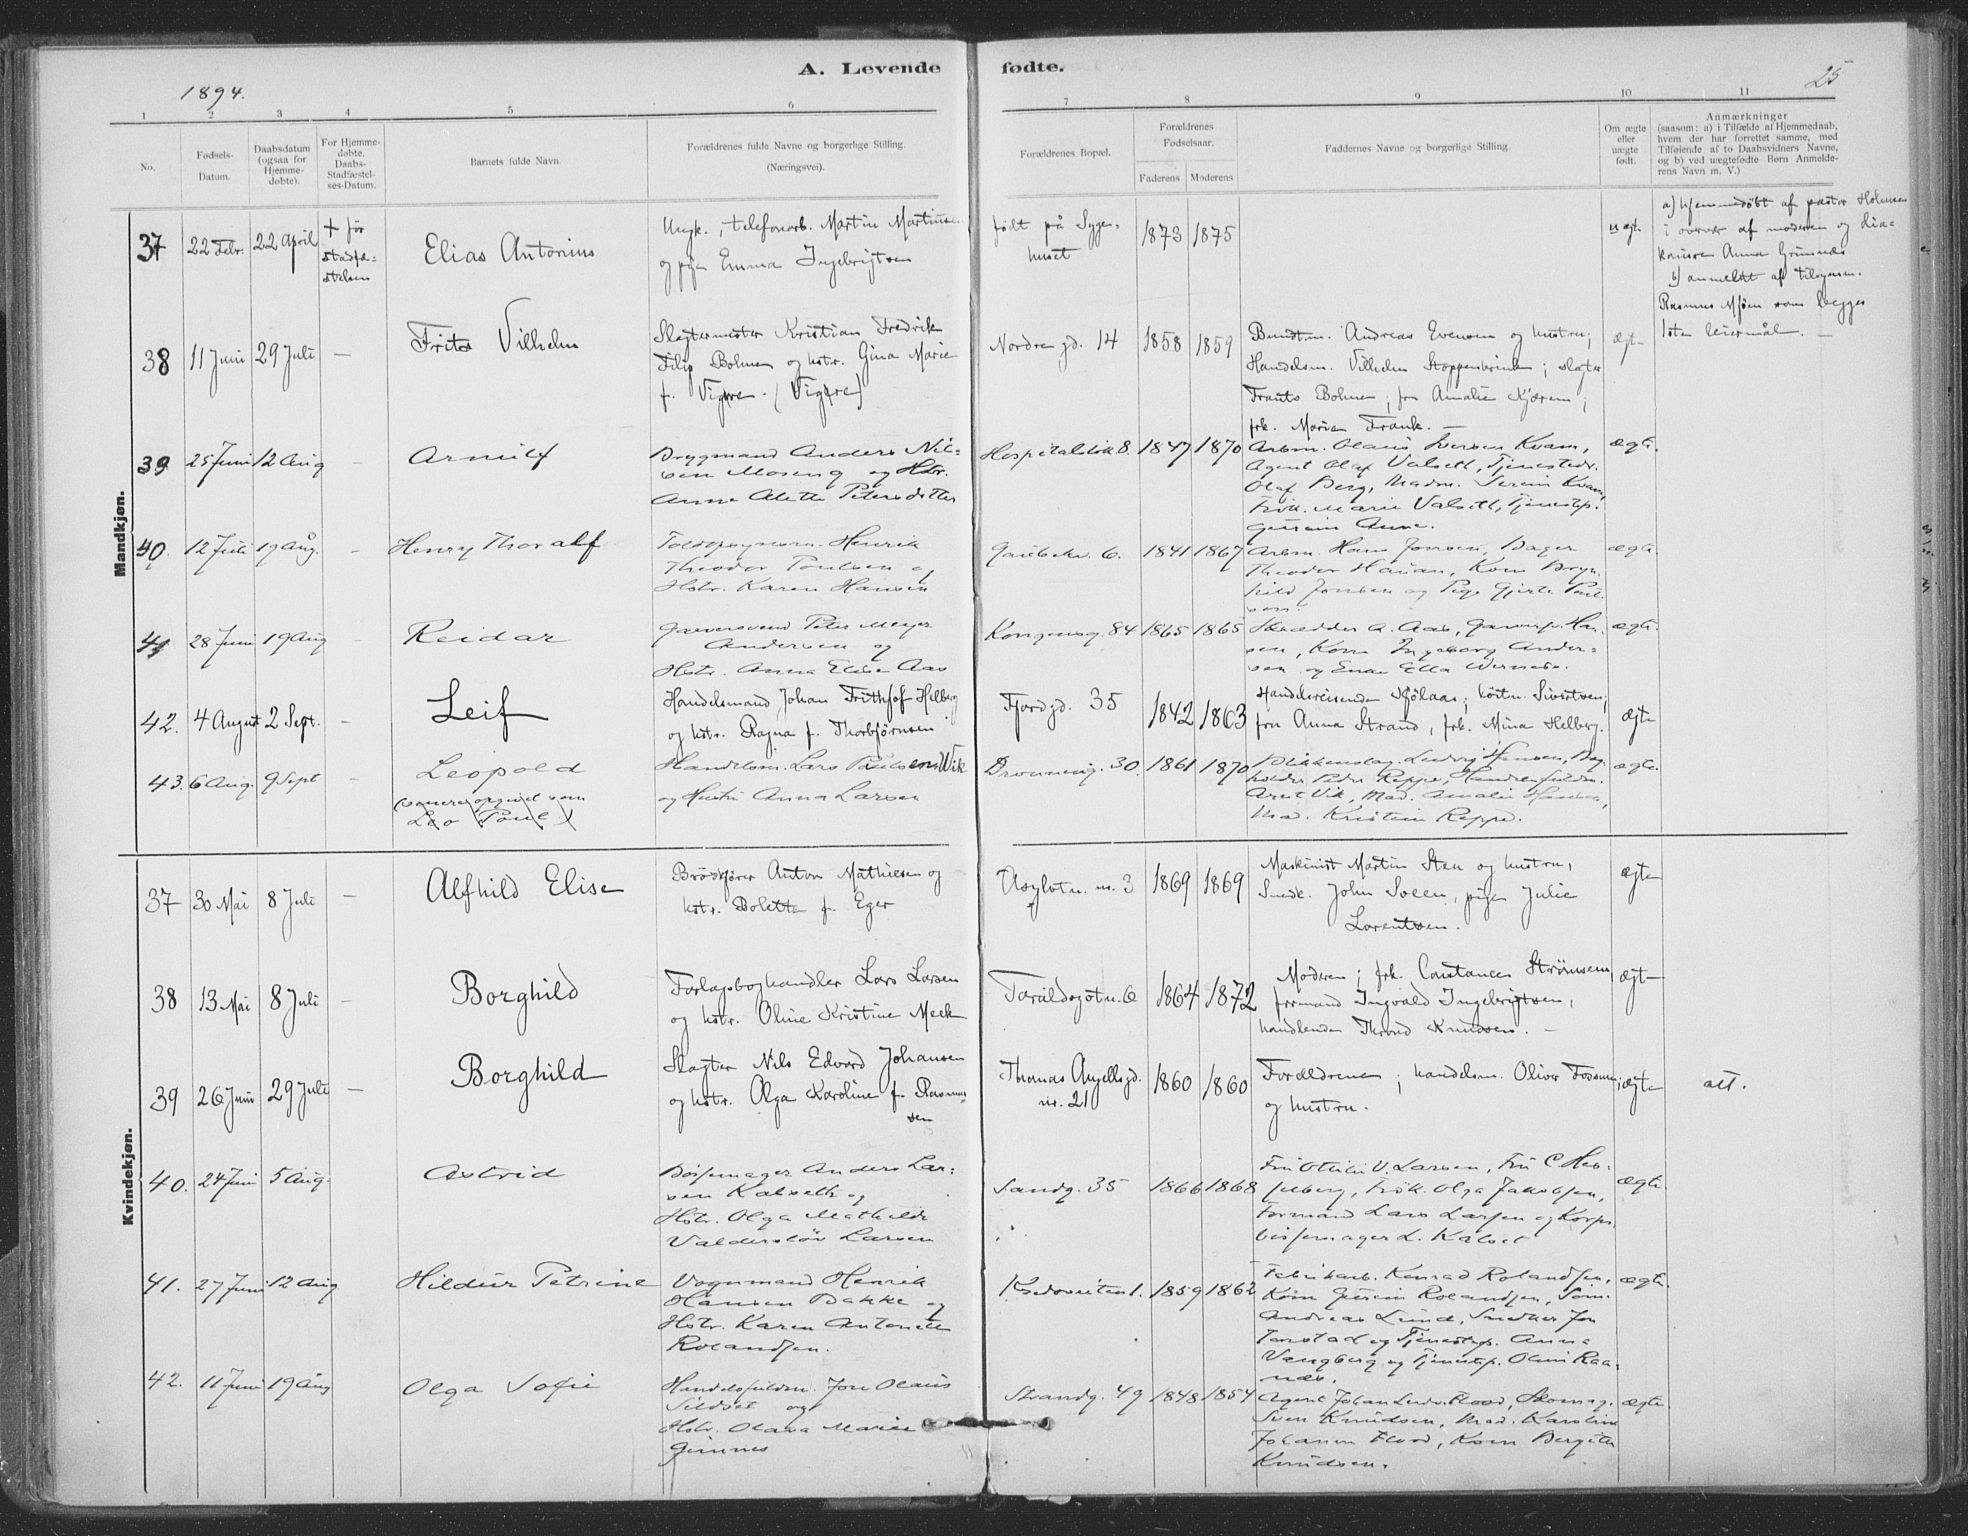 A. Levende fødte.
1894.
25
1 2 3 4 5 6 7 8 9 10 11
No.
Fødsels-Datum.
Daabsdatum (ogsaa for Hjemme-døbte).
For Hjemme-døbte, Daabs-Stadfæstel-ses-Datum.
Barnets fulde Navn.
Forældrenes fulde Navne og borgerlige Stilling.
(Næringsvei).
Forældrenes Bopæl.
Forældrenes Fødselsaar.
Faderens Moderens
Faddernes Navne og borgerlige Stilling.
Om ægte eller uægte født.
Anmærkninger
(saasom: a) i Tilfælde af Hjemmedaab,
hvem der har forrettet samme, med
Tilføiende af to Daabsvidners Navne,
og b) ved uægtefødte Børn Anmelde-
rens Navn m. V.)
Mandkjøn.
37 22 Febr. 22 April + før stadfæ-stelsen Elias Antonius
Ungk., telefonarb. Martin Martinsen
og pige Emma Ingebrigtsen
født på Syge-
huset
1873 1875 uægt.
a) hjemmedøbt af pastor Holmsen
i overvær af moderen og dia-
konissen Anna Grimnæs
b) anmeldt af tilsynsm.
Rasmus Mjøen som begges
1ste leiermål. —
38 11 Juni 29 Juli — Frits Vilhelm
Slagtermester Kristian Fredrik
Filip Bohmer og hstr. Gina Marie
f. Vigre. (Vigre)
Nordre gd. 14 1858 1859
Bundtm. Andreas Evensen og hustru;
Handelsm. Vilhelm Stoppenbrink; slagter
Frants Bohmer; fru Amalie Kjærem;
frk. Marie Frank. —
ægt-
39 25 Juni 12 Aug - Arnulf
Brygmand Anders Nil-
sen Moseng og Hstr.
Anne Alette Petersdatter
Hospitalslök 8. 1847 1870
Arbm. Olaus Iversen Kvam,
Agent Olaf Valseth, Tjenestedr.
Olaf Berg, Madm. Serein Kvam,
Frök. Marie Valseth, Tjenestep.
Gurein Aune.
ægte.
40. 12 Juli 19 Aug. - Henry Thoralf
Toldopsynsm. Henrik
Theodor Poulsen og
Hstr. Karen Hansen
6. 1841 1867
Arbm. Hans Jonsen, Bager
Theodor Hauan, Kone Bryn-
hild Jonsen og Pige Gjerte Poul-
sen.
ægte.
41 28 Juni 19 Aug - Reidar
Garversvend Peter Meyer
Andersen og
Hstr. Anna Elise Aas
Kongensg. 84 1865 1865
Skrædder A. Aas, Garversv. Han-
sen, Kone Ingeborg Ander-
sen og Enke Ella Wernes.
ægte.
42. 4 August 2 Sept. - Leif
Handelsmand Johan Frithjof Helberg
og hstr. Ragna f. Thorbjørnsen
Fjordgd. 35 1842 1863
Handelsreisende Kjølaas; köbm. Sivertsen;
fru Anna Strand, frk. Mina Helberg.
ægte
43. 6 Aug. 9 Sept Leopold
(senere opgivet som
Leo Paul)
Handelsm. Lars Paulsen Wik
og Hustru Anna Larsen
Dronning. 30. 1861 1870
Blikkenslag. Ludvig Hansen, Bog-
holder Peder Reppe, Handelsfuldm.
Arnt Vik, Mad. Amalie Hansen,
Mad. Kristin Reppe.
ægte.
Kvindekjøn.
37 30 Mai 8 Juli — Alfhild Elise
Brödkjører Anton Mathiesen og
hstr. Bolette f. Eger
Asylvtn. nr. 3 1869 1869
Maskinist Martin Sten og hustru,
Snedk. John Soeen, pige Julie
Lorentsen.
ægte
38 13 Mai 8 Juli — Borghild
Forlagsboghandler Lars Larsen
og hstr. Oline Kristine Meek
6 1864 1872
Moderen; frk. Constance Strømsem,
formand Ingvald Ingebrigtsen,
handlende Thrond Knudsen. —
ægt-
39 26 Juni 29 Juli — Borghild
Slagter Nils Edvard Johansen
og hstr. Olga Karoline f. Rasmus-
sen
Thomas Angellsgd.
nr. 21
1860 1860
Forældrene; handelsm. Oliver Fossum;
og hustru.
ægte att.
40. 24 Juni 5 Aug. Astrid
Bøssemager Anders Lar-
sen Kalseth og
Hstr. Olga Mathilde
Valdersløv Larsen
Sandg. 35 1866 1868
Fru Othilie V. Larsen, Fru C. Hes-
selberg, Frök. Olga Jakobsen,
Formand Lars Larsen og Korps-
bøssemager L. Kalset
ægte.
41. 27 Juni 12 Aug Hildur Petrine
Vognmand Henrik
Hansen Bakke og
Hstr. Karen Antonette
Rolandsen.
1. 1859 1862
Fabrikarb. Konrad Rolandsen,
Kone Gurein Rolandsen, Töm.
Andreas Lund, Snedker Jon
Tanstad og Tjenestep. Anna
Vangberg og Tjenestep. Oline Raa-
næs.
ægte.
42. 11 Juni 19 Aug Olga Sofie
Handelsfuldm. Jon Olaus
Sildset og
Hstr. Olava Marie
Gimnes
Strandg. 49 1848 1854
Agent Johan Ludv. Flood, Skomag.
Sven Knudsen, Mad. Karoline
Johanne Flood, Kone Bergitte
Knudsen.
ægte.